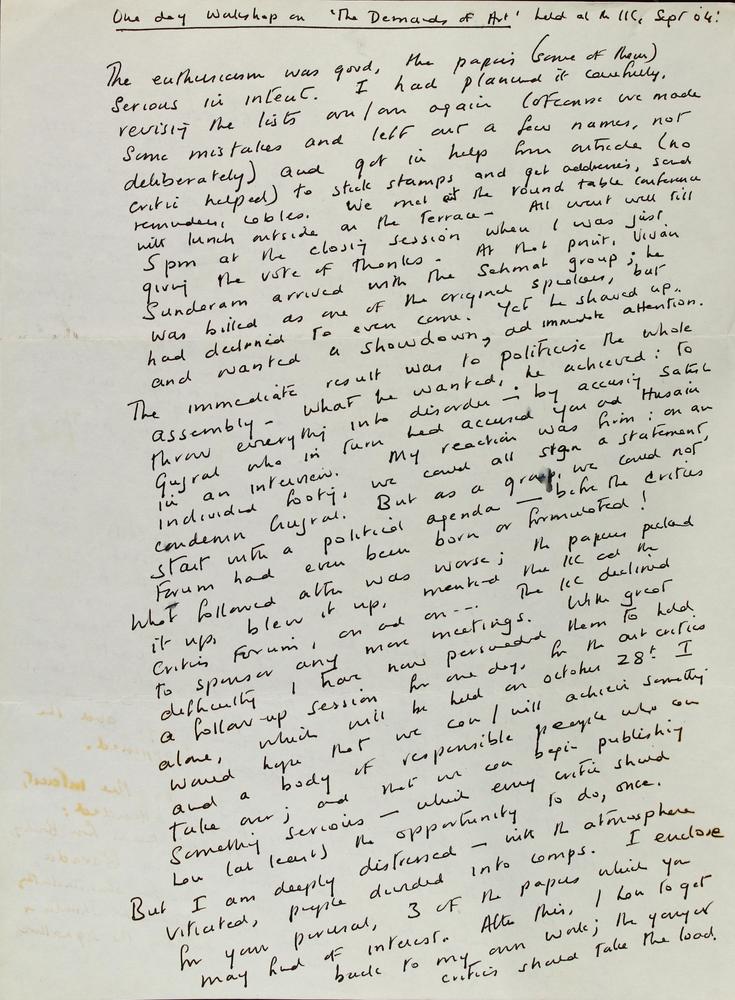 One day Workshop on 'The Demands of Art' held at the IIC, Sept '04:
The enthusiasm was good, the papers (some of them)
serious in intent. I had planned it carefully,
revising the lists over/over again (ofcourse we made
some mistakes and left out a few names, not
deliberately) and got in help from outside (no
critic helped) to stick stamps and get addresses, send
reminders, cables. We met at the round table conference
with lunch outside on the Terrace - All went well till
5 pm at the closing session when I was just
giving the vote of thanks. At that point, Vivan
Sunderam arrived with the Sahmat group; he
was billed as one of the original speakers, but
had declined to even come. Yet he showed up..
and wanted a showdown, and immediate attention.
The immediate result was to politicise the whole
assembly - what he wanted, he achieved: to
throw everything into disorder - by accusing Satish
Gujral who in turn had accused you and Husain
in an interview. My reaction was firm: on an
individual footing, we could all sign a statement,
condemn Gujral. But as a group, we could not
start with a political agenda — before the Critics
Forum had even been born or formulated!
What followed after was worse; the papers picked
it up, blew it up, mentioned the IIC and the
Critics Forum, on and on --- The IIC declined
to sponsor any more meetings. With great
difficulty I have now persuaded them to hold
a follow-up session for one day, for the art critics
alone, which will be held on October 28th. I
would hope that we can/will achieve something
and a body of responsible people who can
take over; and that we can begin publishing
something serious — which every critic should
have (at least) the opportunity to do, once.
But I am deeply distressed — with the atmosphere
vitiated, people divided into camps. I enclose
for your perusal, 3 of the papers which you
may find of interest. After this, I have to get
back to my own work; the younger
critics should take the load.